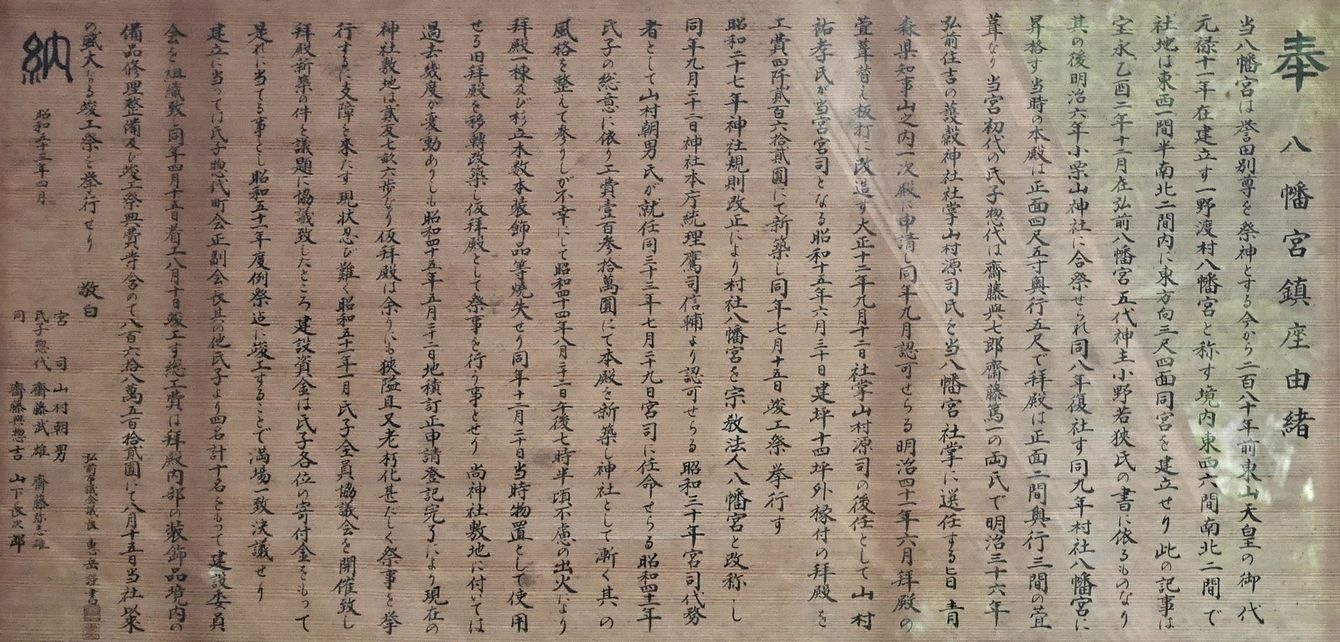 奉
八幡宮鎮座由緒
当八幡宮は誉田別尊を祭神とする今から二百八十年前東山天皇の御代
元禄十一年在建立す一野渡村八幡宮と称す境内東西六間南北二間で
社地は東西一間半南北二間内に東方向三尺四面同宮を建立せり此の記事は
宝永乙酉二年十二月在弘前八幡宮五代神主小野若狭氏の書に依るものなり
其の後明治六年小栗山神社に合祭せられ同八年復社す同九年村社八幡宮に
昇格す当時の本殿は正面四尺五寸奥行五尺で拝殿は正面二間奥行三間の萱
葺なり当宮初代の氏子惣代は齋藤與七郎齋藤萬一の両氏で明治三十六年
弘前住吉の護穀神社社掌山村源司氏を当八幡宮社掌に選任する旨青
森県知事山之内一次殿に申請し同年九月認可せらる明治四十一年六月拝殿の
萱葺替え板打に改造す大正十二年九月十二日社掌山村源司の後任として山村
祐孝氏が当宮宮司となる昭和十五年六月三十日建坪十四坪外稼付の拝殿を
工費四阡貳百六拾貳圓にて新築し同年七月十五日竣工祭挙行す
昭和二十七年神社規則改正により村社八幡宮を宗教法人八幡宮と改称し
同年九月二十二日神社本庁統理鷹司信輔より認可せらる昭和三十年宮司代務
者として山村朝男氏が就任同三十三年七月二十九日宮司に任命せらる昭和四十三年
氏子の総意に依り工費壹百参拾萬圓にて本殿を新築し神社として漸く其の
風格を整えて参りしが不幸にして昭和四十四年八月二十二日午後七時半頃不慮の出火により
拝殿一棟及び杉立木数本装飾品等焼失せり同年十一月二十日当時物置として使用
せる旧拝殿を移轉改築し仮拝殿として祭事を行う事とせり 尚神社敷地に付いては
過去幾度か変動ありしも昭和四十五年五月二十二日地積訂正申請登記完了により現在の
神社敷地は貳反七畝六歩なり仮拝殿は余りにも狭隘且又老朽化甚だしく祭事を挙
行するに支障を来たす現状忍び難く昭和五十一年一月氏子全員協議会を開催致し
拝殿新築の件を議題に協議致したところ建設資金は氏子各位の寄付金をもって
是れに当てる事とし昭和五十一年度例祭迄に竣工することで満場一致決議せり
建立に当っては氏子惣代町会正副会長其の他氏子より四名計十名をもって建設委員
会を組織致し同年四月十五日着工八月十日竣工す総工費は拝殿内部の装飾品境内の
備品修理整備及び竣工祭典費等含めて八百六拾八萬五百拾貳圓にて八月十五日当社以来
の盛大なる竣工祭を挙行せり
敬白
納
昭和五十三年四月
宮司 山村朝男
氏子惣代 齋藤武雄 齋藤弥惣雄
同 齋藤與惣吉 山下長次郎
弘前市議会議長
書